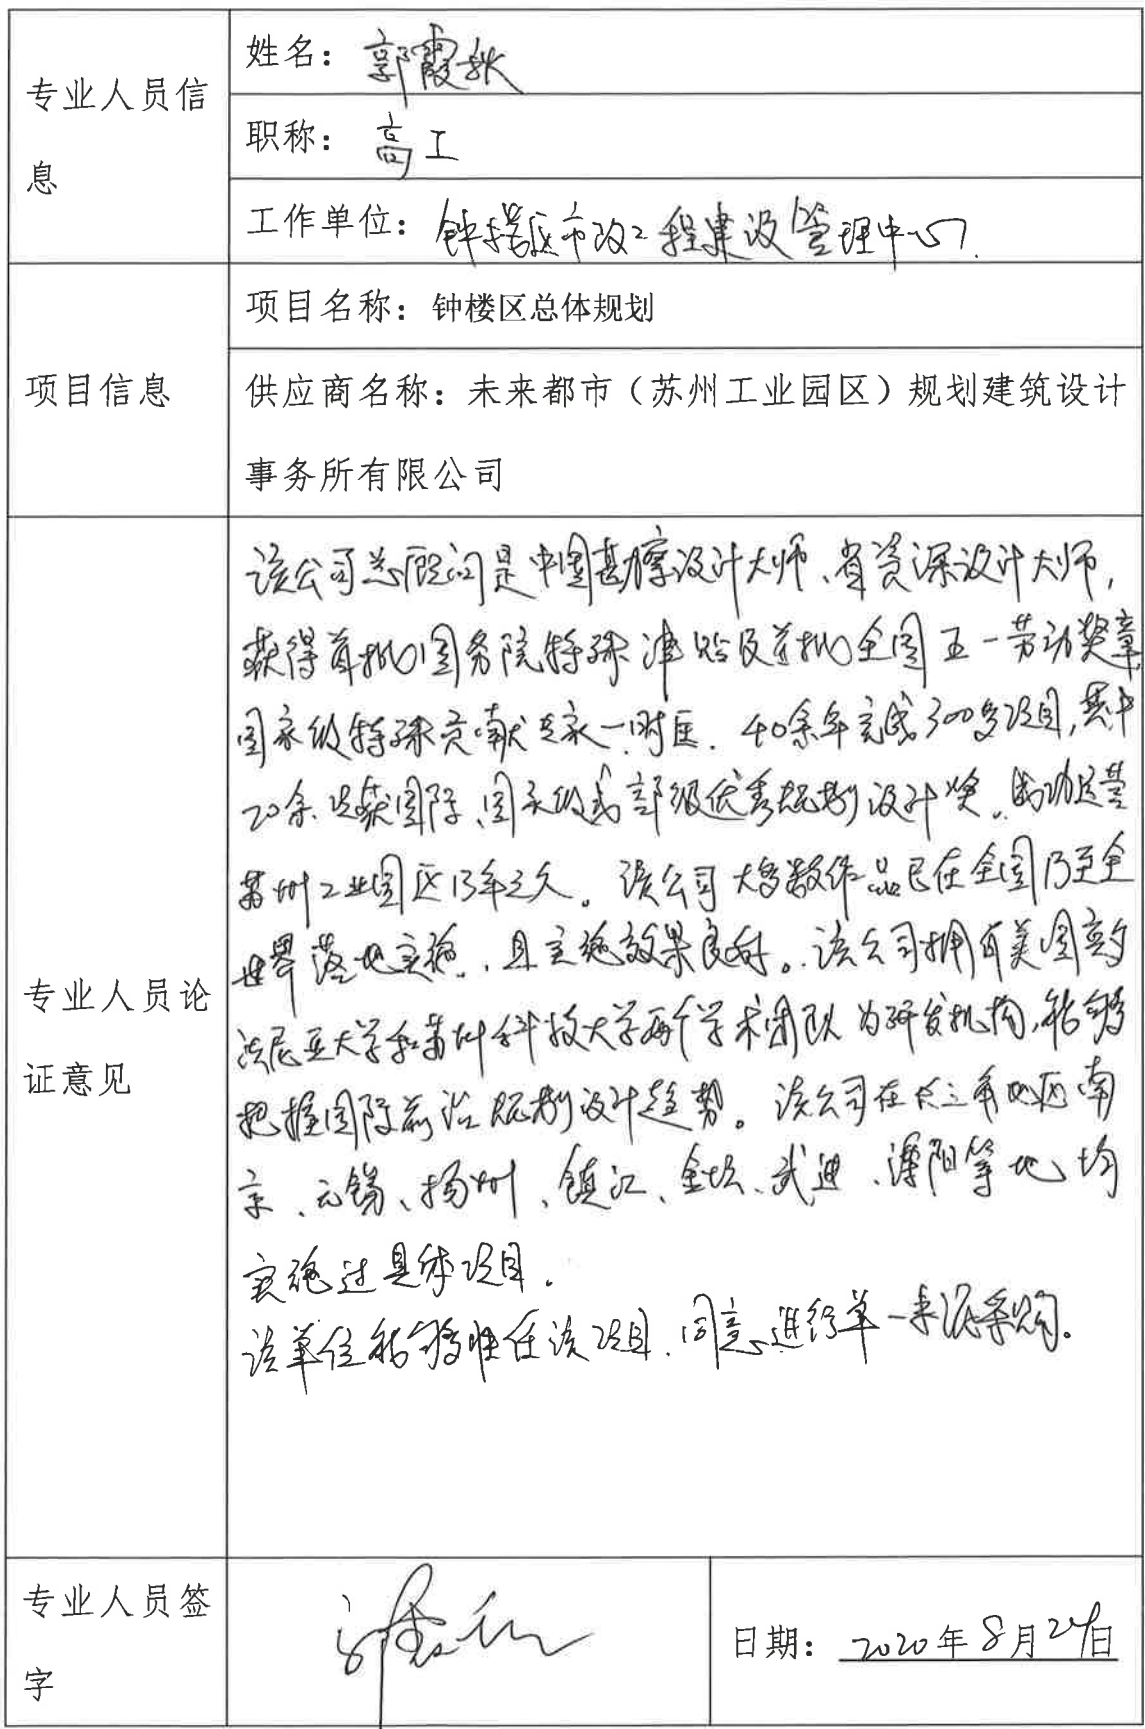 专业人员信
息
姓名：郭霞秋
职称：高工
工作单位：钟楼区市政工程建设管理中心
项目信息
项目名称：钟楼区总体规划
供应商名称：未来都市（苏州工业园区）规划建筑设计
事务所有限公司
专业人员论
证意见
该公司总顾问是中国勘察设计大师、省资深设计大师，
获得首批国务院特殊津贴及首批全国五一劳动奖章，
国家级特殊贡献专家一时匡．40余年完成300多项目，其中
70余次获国际、国家级或部级优秀规划设计奖．成功运营
苏州工业园区13年之久。该公司大多数作品已在全国乃至全
世界落地实施，且实施效果良好。该公司拥有美国宾夕
法尼亚大学和苏州科技大学两个学术团队为研发机构，能够
把握国际前沿规划设计趋势。该公司在长三角地区南
京、无锡、扬州、镇江、金坛、武进、溧阳等地均
实施过具体项目．
该单位能够胜任该项目．同意进行单一来源采购。
专业人员签
字
郭霞秋
日期：2020年8月24日